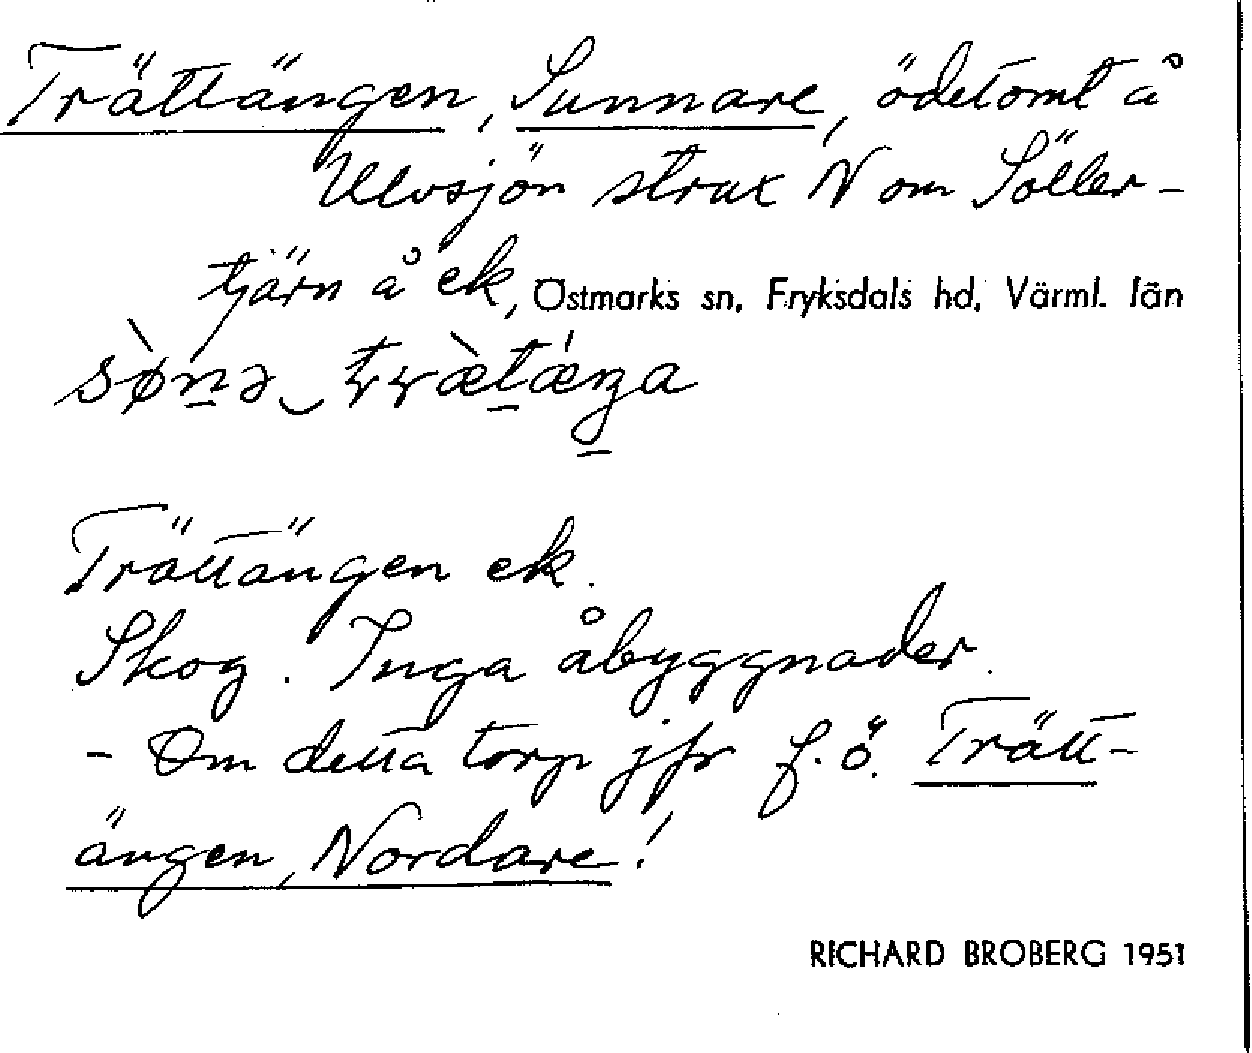 Trättängen, Sunnare, ödetomt å
Ulvsjön strax N om Söller-
tjärn å ek, Östmarks sn, Fryksdals hd, Värml. län
sø̀nə‿træ̀tǽŋa
Trättängen ek.
Skog. Inga åbyggnader.
- Om detta torp jfr f.ö. Trätt-
ängen, Nordare!
RICHARD BROBERG 1951